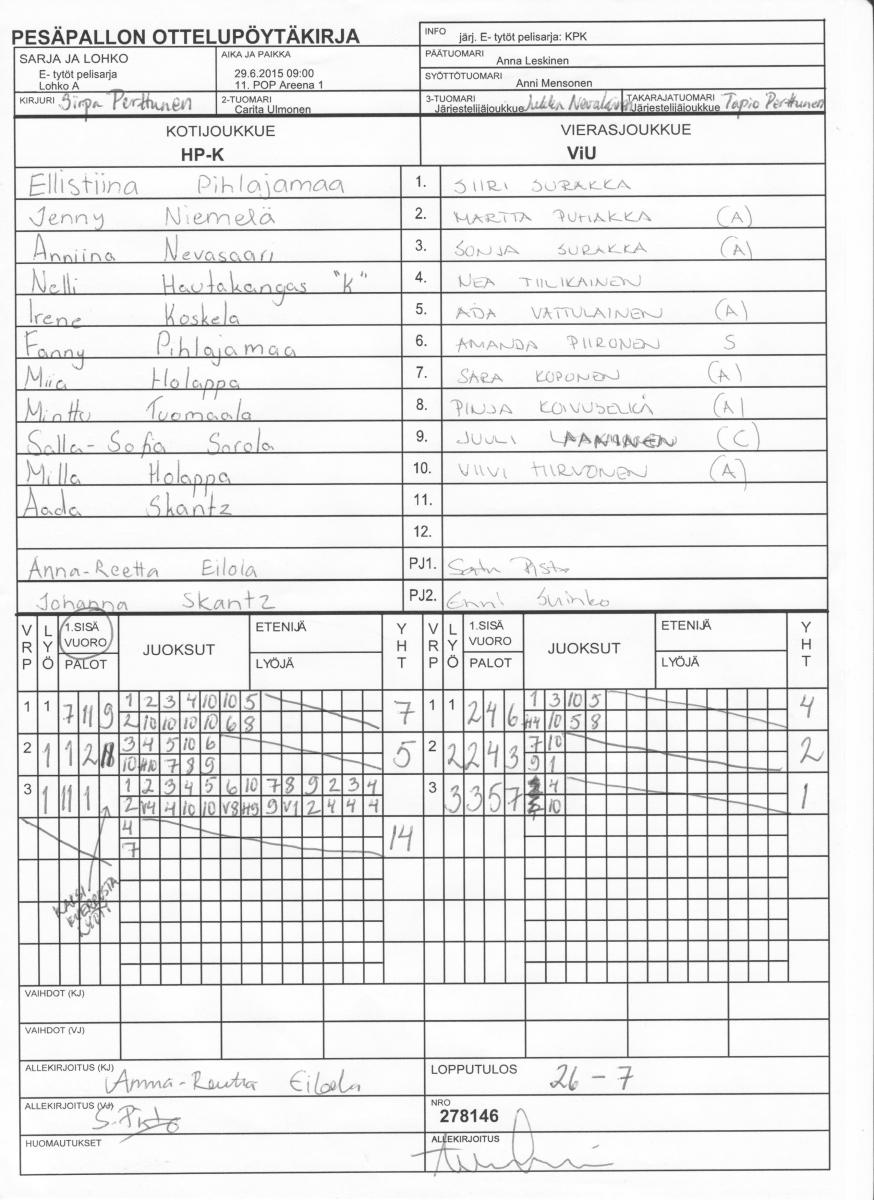 PESÄPALLON OTTELUPÖYTÄKIRJA
INFO järj. E- tytöt pelisarja: KPK
SARJA JA LOHKO
E- tytöt pelisarja
Lohko A
AIKA JA PAIKKA
29.6.2015 09:00
11. POP Areena 1
PÄÄTUOMARI
Anna Leskinen
SYÖTTÖTUOMARI
Anni Mensonen
KIRJURI Sirpa Perttunen
2-TUOMARI
Carita Ulmonen
3-TUOMARI
Järjestelijäjoukkue Jukka
TAKARAJATUOMARI
Järjestelijäjoukkue Tapio Perttunen
KOTIJOUKKUE
HP-K
VIERASJOUKKUE
ViU
Ellistiina Pihlajamaa 1. SIIRI SURAKKA
Jenny Niemelä 2. MARTTA PUHAKKA (A)
Anniina Nevasaari 3. SONJA SURAKKA (A)
Nelli Hautakangas "K" 4. NEA TIILIKAINEN
Irene Koskela 5. ADA VATTULAINEN (A)
Fanny Pihlajamaa 6. AMANDA PIIRONEN S
Miia Holappa 7. SARA KOPONEN (A)
Minttu Tuomaala 8. PINJA KOIVUSELKÄ (A)
Salla-Sofia Sarola 9. JUULI (C)
Milla Holappa 10. VIIVI HIRVONEN (A)
Aada Skantz 11.
12.
Anna-Reetta Eilola PJ1. Satu Pisto
Johanna Skantz PJ2. Enni
VRP LYÖ 1.SISÄ VUORO PALOT JUOKSUT ETENIJÄ LYÖJÄ YHT VRP LYÖ 1.SISÄ VUORO PALOT JUOKSUT ETENIJÄ LYÖJÄ YHT
1 1 7 11 9 1 2 3 4 10 10 5 7 1 1 2 4 6 1 3 10 5 4
2 10 10 10 10 6 8 H4 10 5 8
2 1 1 2 3 4 5 10 6 5 2 2 2 4 3 7 10 2
10 H10 7 8 9 9 1
3 1 11 1 1 2 3 4 5 6 10 7 8 9 2 3 4 3 3 3 5 7 4 1
2 V4 4 10 10 V8 H9 9 V1 2 4 4 4 10
4 14
7
KAKSI
LYÖTI
VAIHDOT (KJ)
VAIHDOT (VJ)
ALLEKIRJOITUS (KJ) Anna-Reetta Eilola
LOPPUTULOS 26 - 7
ALLEKIRJOITUS (VJ) S. Pisto
NRO
278146
HUOMAUTUKSET
ALLEKIRJOITUS